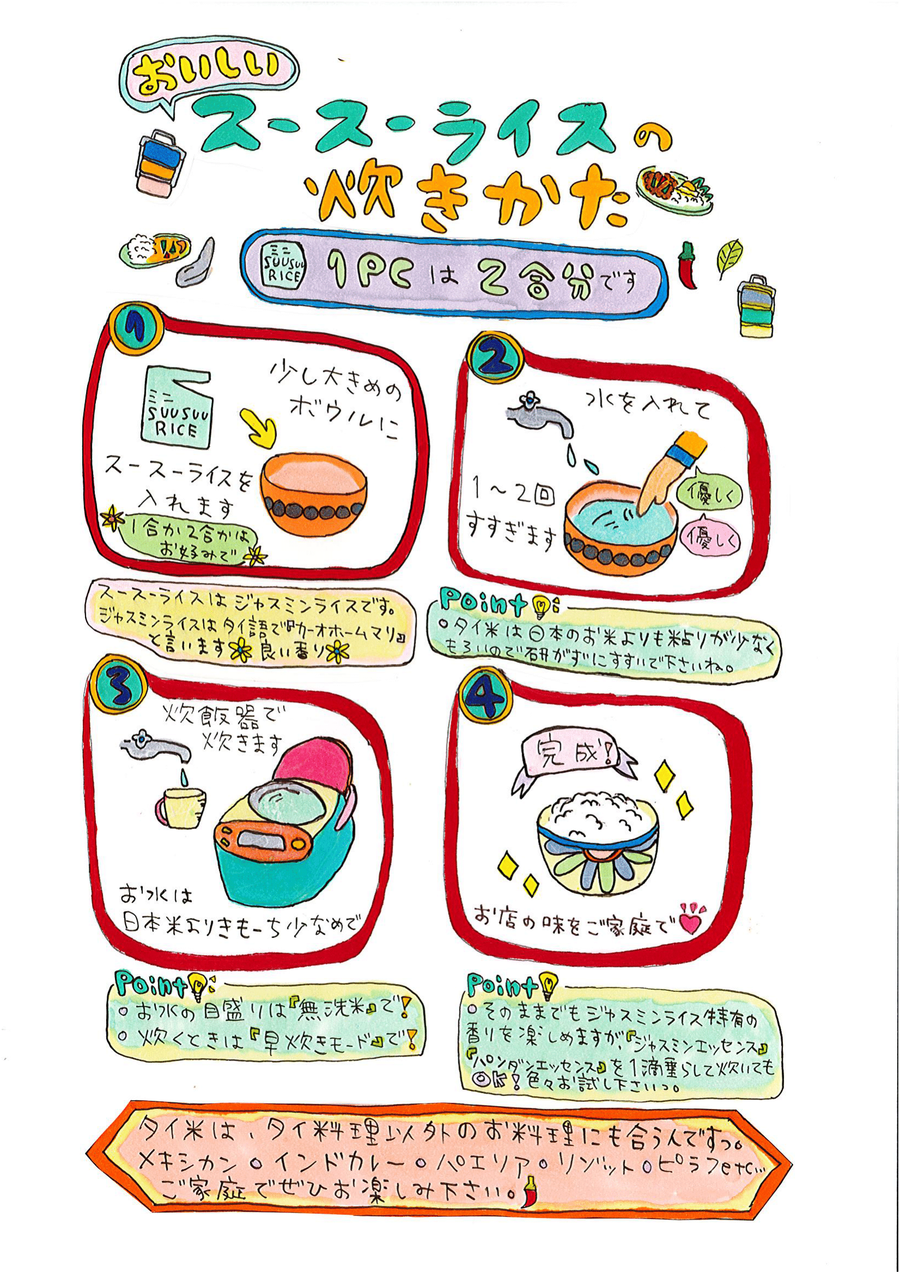 おいしい
スースーライスの
炊きかた
ミニ
SUUSUU
RICE
1PCは2合分です
1
少し大きめの
ボウルに
ミニ
SUUSUU
RICE
スースーライスを
入れます
1合か2合かは
お好みで
スースーライスはジャスミンライスです。
ジャスミンライスはタイ語で『カーオホームマリ』
と言います 良い香り
2
水を入れて
1〜2回
すすぎます
優しく
優しく
Point
○タイ米は日本のお米よりも粘りが少なく
もろいので研がずにすすいで下さいね。
3
炊飯器で
炊きます
お水は
日本米よりきもーち少なめで
Point
○お水の目盛りは『無洗米』で!
○炊くときは『早炊きモード』で!
4
完成!
お店の味をご家庭で
Point
○そのままでもジャスミンライス特有の
香りを楽しめますが『ジャスミンエッセンス』
『パンダンエッセンス』を1滴垂らして炊いても
OK!色々お試し下さいっ。
タイ米は、タイ料理以外のお料理にも合うんですっ。
メキシカン・インドカレー・パエリア・リゾット・ピラフetc…
ご家庭でぜひお楽しみ下さい。